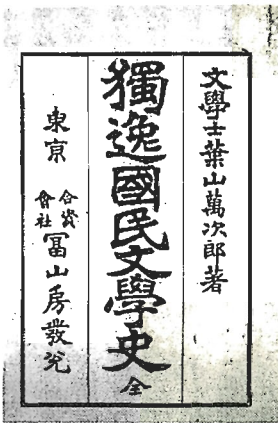 文學士葉山萬次郎著
獨逸國民文學史 全
東京 合資會社 冨山房發兌